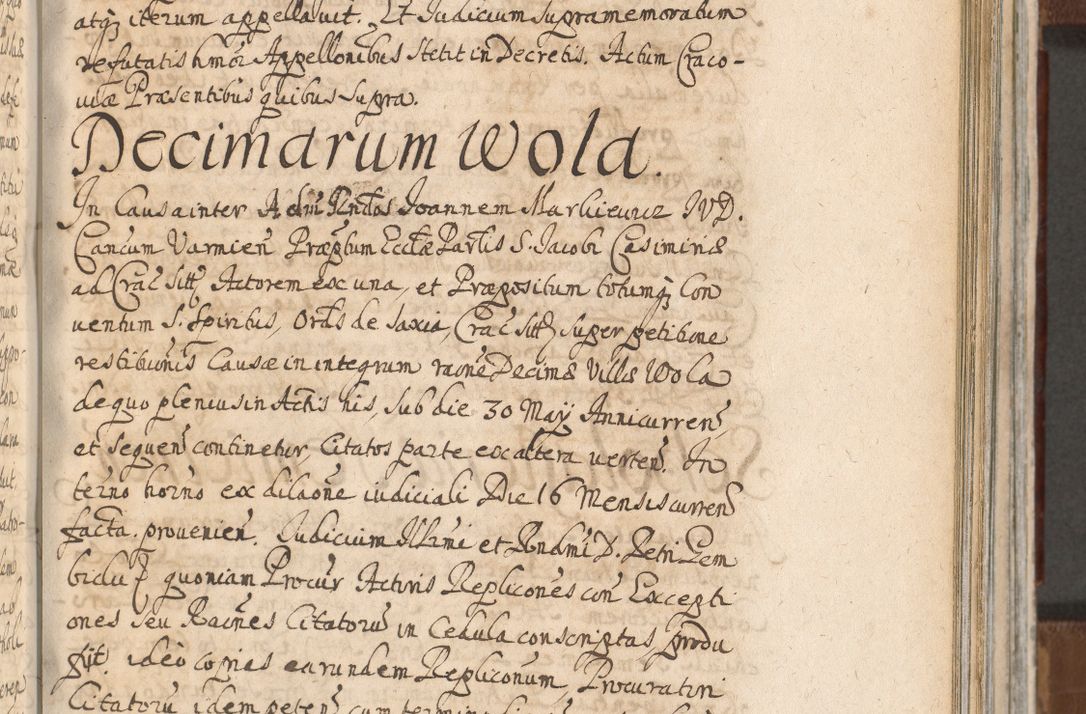 atq₃ iterum appellavit. Et Iudicium supramemoratum
refutatis hmoi Appellonibus stetit in Decretis. Actum Craco-
viæ Præsentibus quibus supra.
Decimarum Wola.
In Causa inter Adm Rndos Ioannem Markiewicz IVD.
Cancum Varmien Præptum Ecclæ Parlis S. Iacobi Casimiriæ
ad Crac sitt Actorem ex una, et Præpositum totumq₃ Con
ventum S. Spiritus, Ords de Saxia, Crac sitt super petitione
restibunis Causæ in integrum raone Decimæ Villæ Wola
de quo plenius in Actis his, sub die 30 May Anni curren
et sequen continetur, Citatos parte ex altera verten. In
terno horno ex dilaone iudiciali Die 16 Mensis curren
facta. provenien. Iudicium Illrmi et Rndmi D. Petri Gem
bicki quoniam Procur Actoris Replicones con Excepti
ones seu Raones Citatoru in Cedula conscriptas produ
xit. ideo copias earundem Repliconum, Procuratiri
Citatoru idem peten cum termino